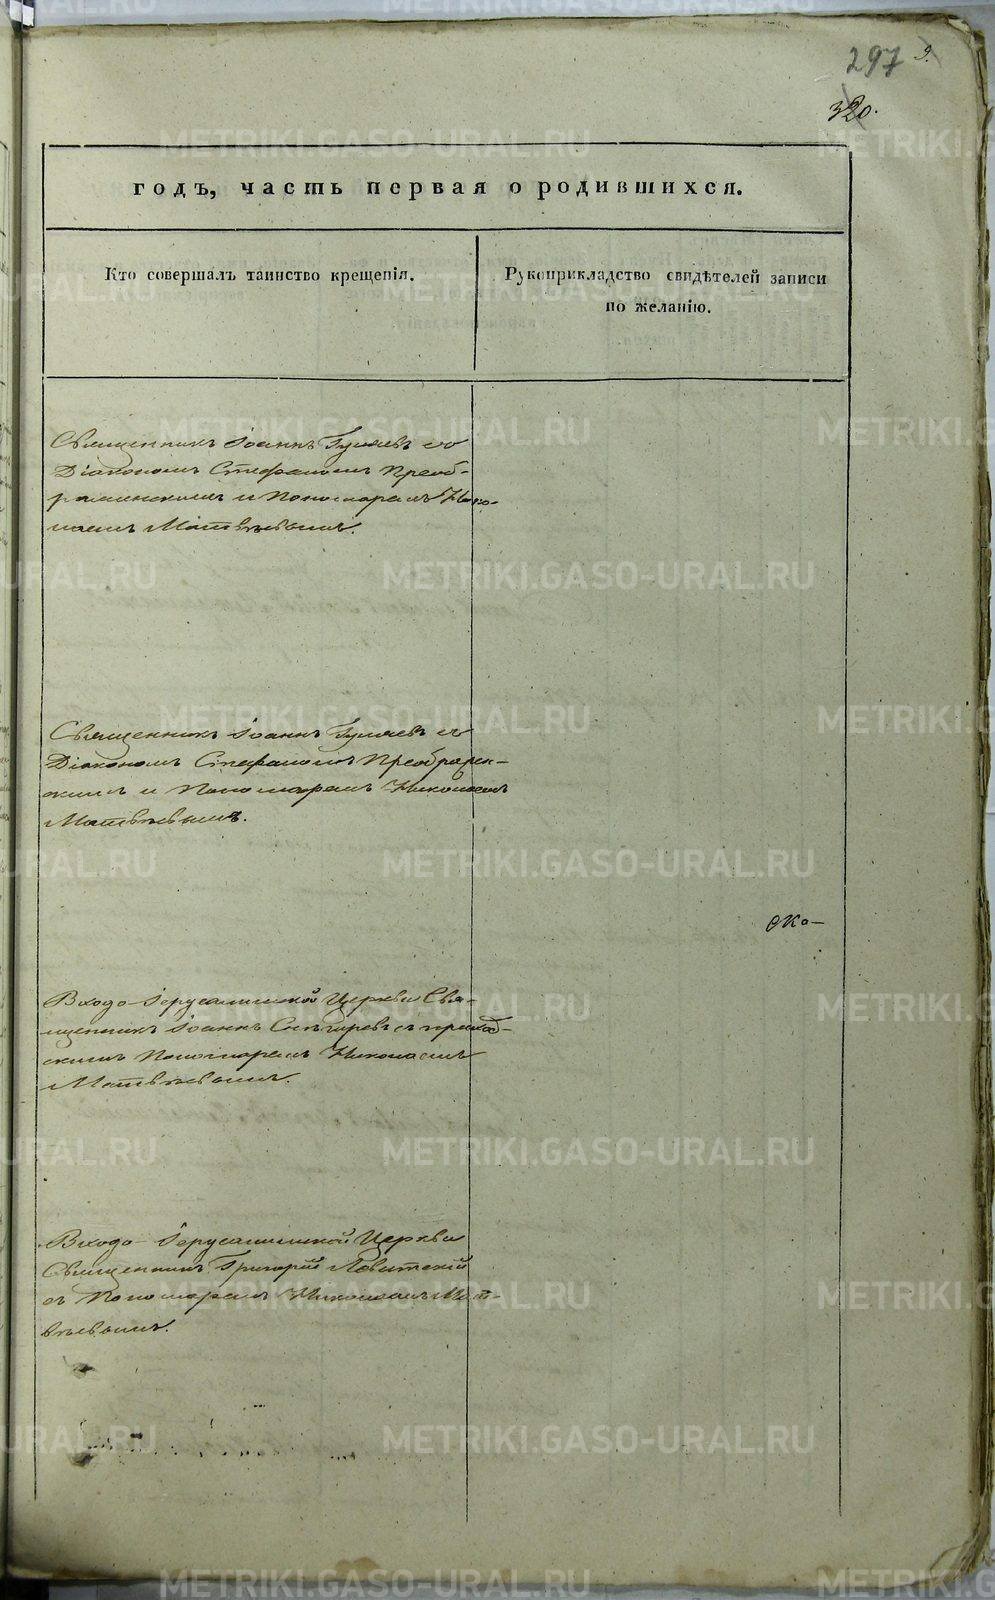 297 9.
320.
годъ, часть первая о родившихся.
Кто совершалъ таинство крещенія.
Рукоприкладство свидѣтелей записи
по желанію.
Священникъ Іоаннъ Гуляевъ со
Діакономъ Стефаномъ Преоб-
раженскимъ и Пономаремъ Нико-
лаемъ Матвѣевымъ.
Священникъ Іоаннъ Гуляевъ съ
Діакономъ Стефаномъ Преображен-
скимъ и Пономаремъ Николаемъ
Матвѣевымъ.
Входо-Іерусалимской Церкви Свя-
щенникъ Іоаннъ Снѣгиревъ съ приход-
скимъ Пономаремъ Николаемъ
Матвѣевымъ.
Входо-Іерусалимской Церкви
Священникъ Григорій Ловитскій
съ Пономаремъ Николаемъ Мат-
вѣевымъ.
METRIKI.GASO-URAL.RU